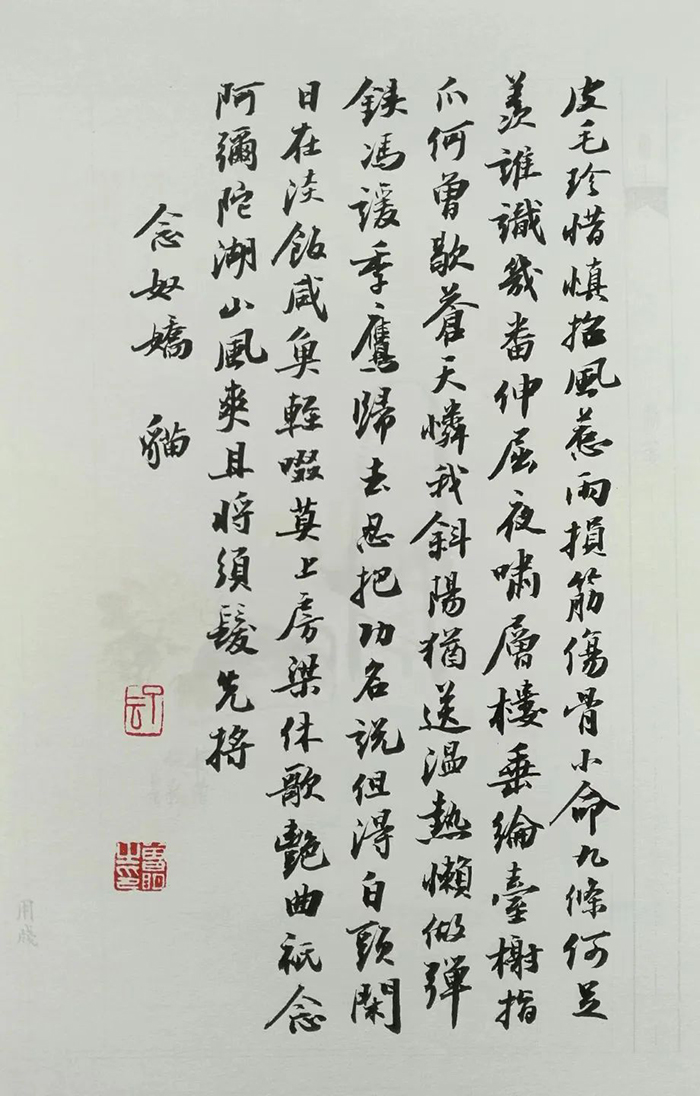 皮毛珍惜慎招風惹雨損筋傷骨小命九條何足
羨誰識幾番伸屈夜嘯層樓垂綸臺榭指
爪何曾歇蒼天憐我斜陽猶送溫熱懶做彈
鋏馮諼季鷹歸去忍把功名說但得白頭閑
日在淡飯咸魚輕啜莫上房梁休歌艷曲祇念
阿彌陀湖山風爽且將須髮先捋
念奴嬌 貓
用箋